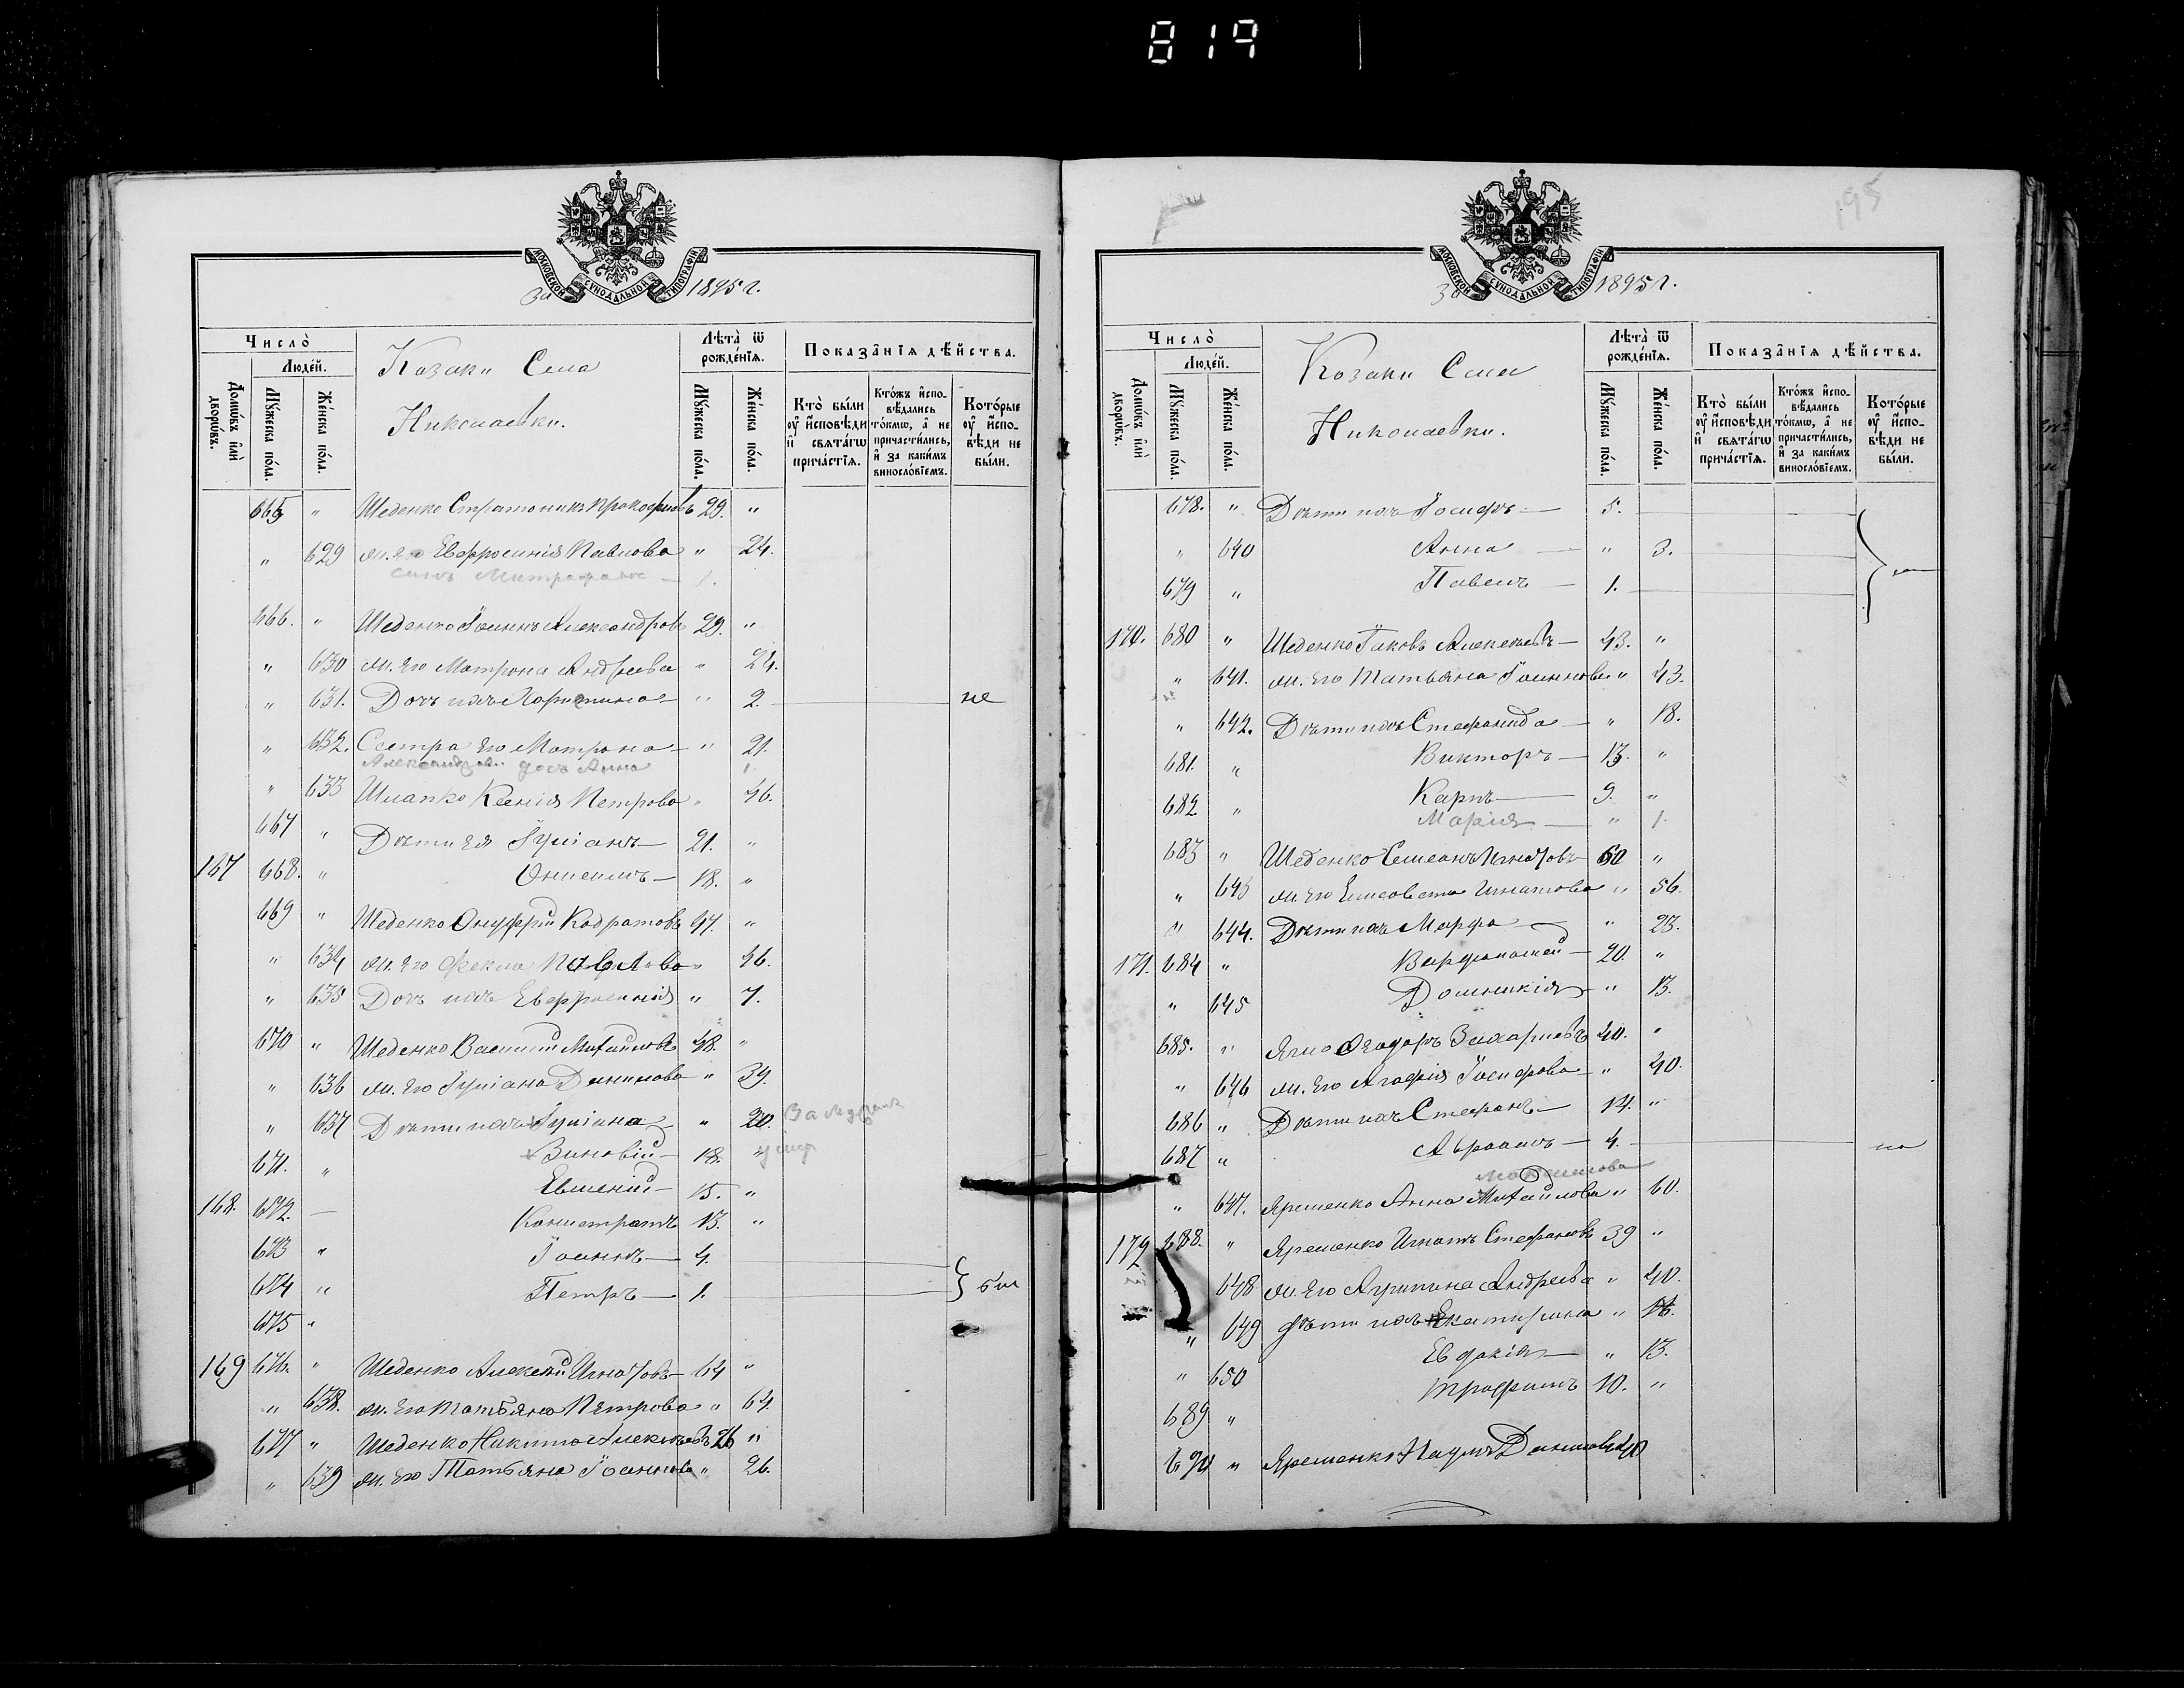 819
195
МОСКОВСКОЙ СѴНОДАЛЬНОЙ ТИПОГРАФІИ
За 1895 г.
Число̀
Людей.
Домѡвъ и҆лѝ дворѡвъ.
Мꙋжеска пола.
Женска пола.
Козаки Села
Николаевки.
Лѣта̀ ѿ рожденїѧ.
Мꙋжеска пола.
Женска пола.
Показанїѧ дѣйства.
Кто̀ были оу҆ и҆сповѣди и҆ свѧтагѡ причастїѧ.
Ктожъ и҆споведались токмѡ, а҆ не причастились, и҆ за какимъ винословїемъ.
Которые оу҆ и҆сповѣди не были.
665 " Шеденко Стратоникъ Прокофіевъ 29. "
" 629 ж. его Евфросинія Павлова " 24.
сынъ Митрофанъ — 1.
666. " Шеденко Іоаннъ Александровъ 29. "
" 630 ж. его Матрона Андреева " 24.
" 631. Дочь ихъ Харитина " 2. — не
" 632. Сестра его Матрона — " 21.
дочь Анна 1.
" 633 Шпапко Ксенія Петрова " 46.
667 " Дѣти ея Іуліанъ — 21. "
167 668. " Онисимъ — 18. "
669 " Шеденко Онуфрій Кодратовъ 47. "
" 634 ж. его Фекла Павлова " 46.
" 635 Дочь ихъ Евфросинія " 7.
670 " Шеденко Василий Михаиловъ 48. "
" 636 ж. его Іуліана Данилова " 39.
" 637 Дѣти ихъ Іуліана — " 20. За мужем
671. " Зиновій — 18. " умер
Евменій — 15. "
168. 672. — Калистратъ 13. "
673 " Іоаннъ — 4.
674 " Петръ — 1.
675 "
169 676. " Шеденко Алексей Игнатовъ — 64 "
" 638. ж. его Татьяна Петрова " 64.
677 " Шеденко Никита Алексѣевъ 26 "
" 639 ж. его Татьяна Іоаннова " 26.
МОСКОВСКОЙ СѴНОДАЛЬНОЙ ТИПОГРАФІИ
За 1895 г.
Число̀
Людей.
Домѡвъ и҆лѝ дворѡвъ.
Мꙋжеска пола.
Женска пола.
Козаки Села
Николаевки.
Лѣта̀ ѿ рожденїѧ.
Мꙋжеска пола.
Женска пола.
Показанїѧ дѣйства.
Кто̀ были оу҆ и҆сповѣди и҆ свѧтагѡ причастїѧ.
Ктожъ и҆споведались токмѡ, а҆ не причастились, и҆ за какимъ винословїемъ.
Которые оу҆ и҆сповѣди не были.
678. " Дѣти ихъ Іосифъ — 5.
" 640 Анна — " 3.
679 " Павелъ — 1.
170. 680 " Шеденко Іаковъ Алексѣевъ — 43. "
" 641. ж. его Татьяна Іоаннова " 43.
" 642. Дѣти ихъ Стефанида — " 18.
681. " Викторъ — 13. "
682 " Карпъ — 9. "
Марія — " 1.
683 " Шеденко Симеонъ Игнатовъ 60 "
" 643 ж. его Елисавета Игнатова " 56.
" 644. Дѣти ихъ Марфа — " 23.
171. 684 " Варфоломей — 20. "
" 645 Домникія — " 13.
685. " Ягло Феодоръ Захаріевъ 40. "
" 646 ж. его Агафія Іосифова — " 40.
686 " Дѣти ихъ Стефанъ — 14. "
687 " Авраамъ — 4. — не
" 647. Яременко Анна Михаилова " 60.
172 688. " Яременко Игнатъ Стефановъ 39 "
648 ж. его Агрипина Андреева " 40.
" 649 дѣти ихъ Екатерина " 16.
" 650 Евдокія — " 13.
689 " Трофимъ 10. "
690 " Яременко Наумъ Даниловъ 40